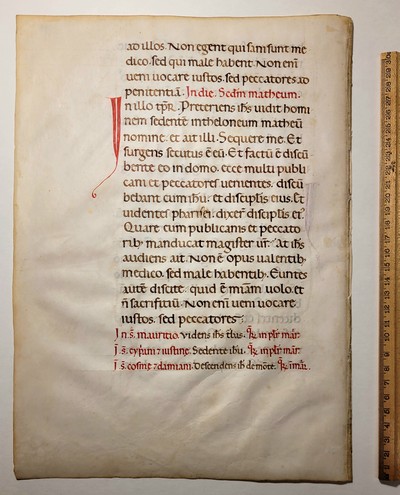 ad illos. Non egent qui sani sunt me
dico. sed qui male habent. Non eni̅
ueni uocare iustos. sed peccatores ad
penitentia̅. In die. Sedm̅ matheum.
In illo tp̅r. Preteriens ih̅s uidit homi
nem sedente̅ in theloneum matheu̅
nomine. et ait illi. Sequere me. Et
surgens secutus e̅ eu̅. Et factu̅ e̅ discu̅
bente eo in domo. ecce multi publi
cani et peccatores uenientes. discu̅
bebant cum ih̅u. et discipulis eius. Et
uidentes pharisei. dixer̅ discipulis ei᷒.
Quare cum publicanis et peccato
rib; manducat magister ur̅. At ih̅s
audiens ait. Non e̅ opus ualentib;
medico. sed male habentib;. Euntes
aute̅ discite. quid e̅ mi̅am uolo. et
n̅ sacrifitiu̅. Non eni̅ ueni uocare
iustos. sed peccatores.
In s̅. mauritio. Videns ih̅s t̅bas.
I s̅. cyp̅iani ⁊ iustine. Sedente ih̅u.
I s̅. cosme ⁊ damiani. Descendens ih̅ de mo̅te.